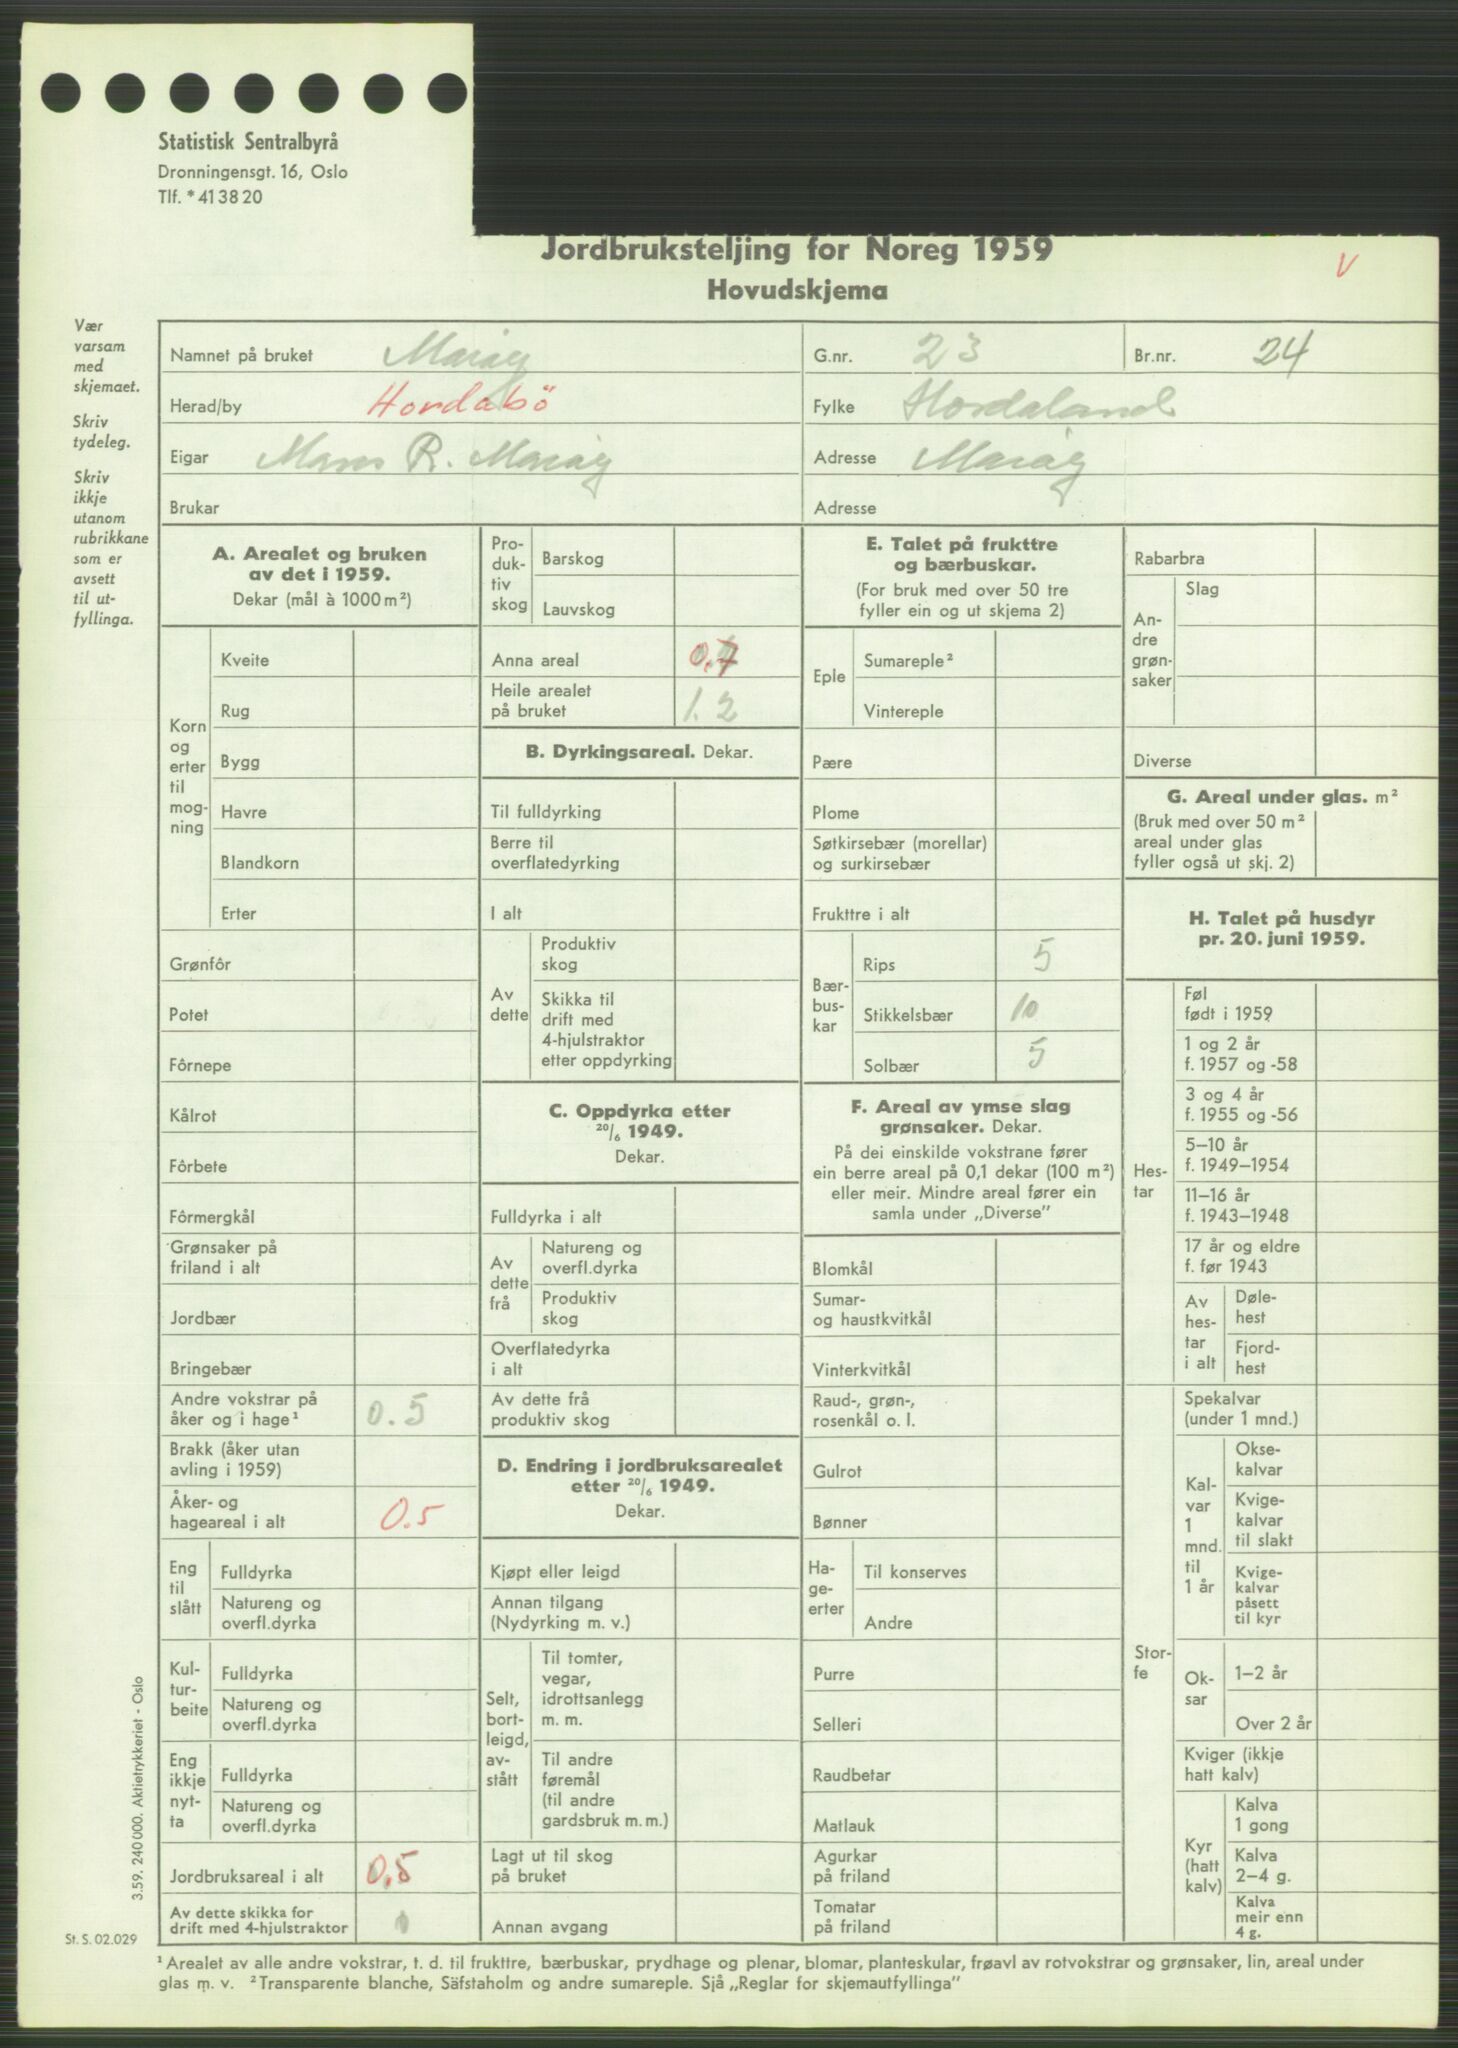 Statistisk Sentralbyrå
Dronningensgt. 16, Oslo
Tlf. * 41 38 20
Jordbruksteljing for Noreg 1959
V
Hovudskjema
Vær
varsam
med
skjemaet.
Skriv
tydeleg.
Skriv
ikkje
utanom
rubrikkane
som er
avsett
til ut-
fyllinga.
Namnet på bruket Marøy
G.nr. 23
Br.nr. 24
Herad/by Hordabö
Fylke Hordaland
Eigar Mons R. Marøy
Adresse Marøy
Brukar
Adresse
A. Arealet og bruken
av det i 1959.
Dekar (mål à 1000 m²)
Korn
og
erter
til
mog-
ning
Kveite
Rug
Bygg
Havre
Blandkorn
Erter
Grønfôr
Potet
Fôrnepe
Kålrot
Fôrbete
Fôrmergkål
Grønsaker på
friland i alt
Jordbær
Bringebær
Andre vokstrar på
åker og i hage¹ 0.5
Brakk (åker utan
avling i 1959)
Åker- og
hageareal i alt 0.5
Eng
til
slått
Fulldyrka
Natureng og
overfl.dyrka
Kul-
tur-
beite
Fulldyrka
Natureng og
overfl.dyrka
Eng
ikkje
nyt-
ta
Fulldyrka
Natureng og
overfl.dyrka
Jordbruksareal i alt 0,5
Av dette skikka for
drift med 4-hjulstraktor
Pro-
duk-
tiv
skog
Barskog
Lauvskog
Anna areal 0,7
Heile arealet
på bruket 1.2
B. Dyrkingsareal. Dekar.
Til fulldyrking
Berre til
overflatedyrking
I alt
Av
dette
Produktiv
skog
Skikka til
drift med
4-hjulstraktor
etter oppdyrking
C. Oppdyrka etter
20/6 1949.
Dekar.
Fulldyrka i alt
Av
dette
frå
Natureng og
overfl.dyrka
Produktiv
skog
Overflatedyrka
i alt
Av dette frå
produktiv skog
D. Endring i jordbruksarealet
etter 20/6 1949.
Dekar.
Kjøpt eller leigd
Annan tilgang
(Nydyrking m. v.)
Selt,
bort-
leigd,
av-
stått
Til tomter,
vegar,
idrottsanlegg
m. m.
Til andre
føremål
(til andre
gardsbruk m. m.)
Lagt ut til skog
på bruket
Annan avgang
E. Talet på frukttre
og bærbuskar.
(For bruk med over 50 tre
fyller ein og ut skjema 2)
Eple
Sumareple²
Vintereple
Pære
Plome
Søtkirsebær (morellar)
og surkirsebær
Frukttre i alt
Bær-
bus-
kar
Rips 5
Stikkelsbær 10
Solbær 5
F. Areal av ymse slag
grønsaker. Dekar.
På dei einskilde vokstrane fører
ein berre areal på 0,1 dekar (100 m²)
eller meir. Mindre areal fører ein
samla under „Diverse”
Blomkål
Sumar-
og haustkvitkål
Vinterkvitkål
Raud-, grøn-,
rosenkål o. l.
Gulrot
Bønner
Ha-
ge-
erter
Til konserves
Andre
Purre
Selleri
Raudbetar
Matlauk
Agurkar
på friland
Tomatar
på friland
Rabarbra
An-
dre
grøn-
saker
Slag
Diverse
G. Areal under glas. m²
(Bruk med over 50 m²
areal under glas
fyller også ut skj. 2)
H. Talet på husdyr
pr. 20. juni 1959.
Hes-
tar
Føl
født i 1959
1 og 2 år
f. 1957 og -58
3 og 4 år
f. 1955 og -56
5–10 år
f. 1949–1954
11–16 år
f. 1943–1948
17 år og eldre
f. før 1943
Av
hes-
tar
i alt
Døle-
hest
Fjord-
hest
Stor-
fe
Spekalvar
(under 1 mnd.)
Kal-
var
1
mnd.
til
1 år
Okse-
kalvar
Kvige-
kalvar
til slakt
Kvige-
kalvar
påsett
til kyr
Ok-
sar
1–2 år
Over 2 år
Kviger (ikkje
hatt kalv)
Kyr
(hatt
kalv)
Kalva
1 gong
Kalva
2–4 g.
Kalva
meir enn
4 g.
3.59. 240 000. Aktietrykkeriet - Oslo
St. S. 02.029
¹ Arealet av alle andre vokstrar, t. d. til frukttre, bærbuskar, prydhage og plenar, blomar, planteskular, frøavl av rotvokstrar og grønsaker, lin, areal under
glas m. v. ² Transparente blanche, Säfstaholm og andre sumareple. Sjå „Reglar for skjemautfyllinga”